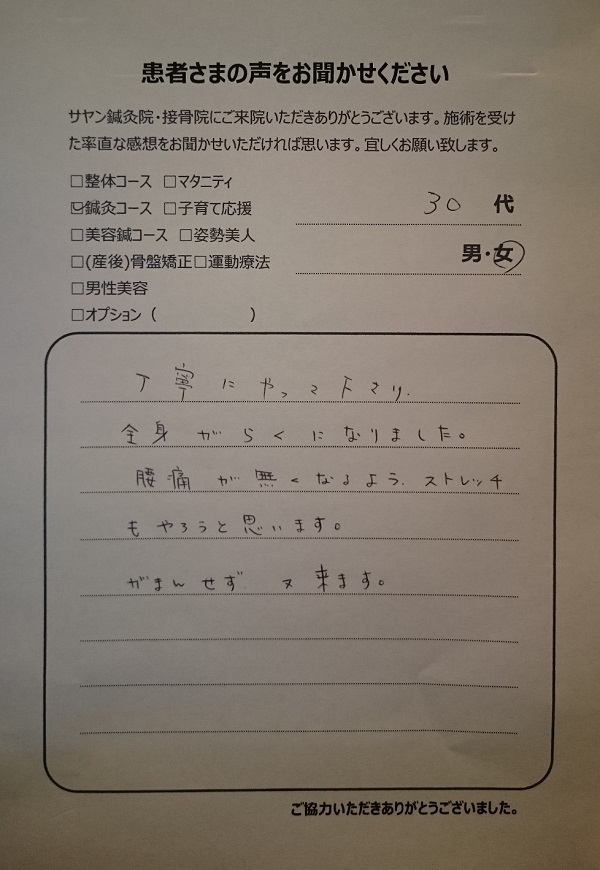 患者さまの声をお聞かせください
サヤン鍼灸院・接骨院にご来院いただきありがとうございます。施術を受け
た率直な感想をお聞かせいただければ思います。宜しくお願い致します。
□整体コース □マタニティ
☑鍼灸コース □子育て応援
□美容鍼コース □姿勢美人
□(産後)骨盤矯正□運動療法
□男性美容
□オプション（　　　　　　）
30 代
男・女
丁寧にやって下さり、
全身がらくになりました。
腰痛が無くなるよう、ストレッチ
もやろうと思います。
がまんせず、又来ます。
ご協力いただきありがとうございました。